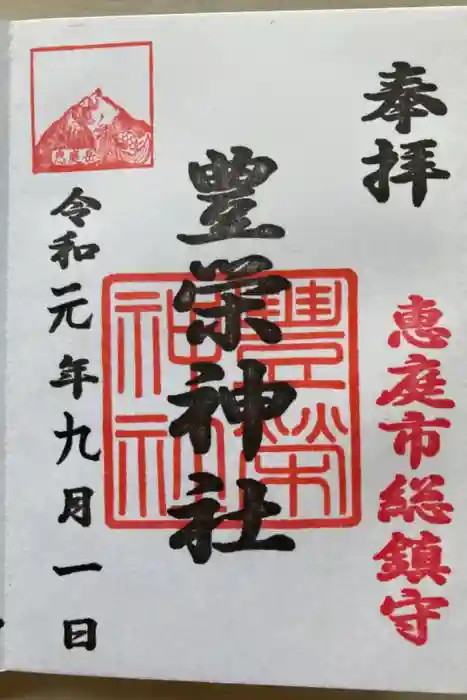 奉拝
恵庭市総鎮守
豊栄神社
豊榮神社
令和元年九月一日
恵庭岳